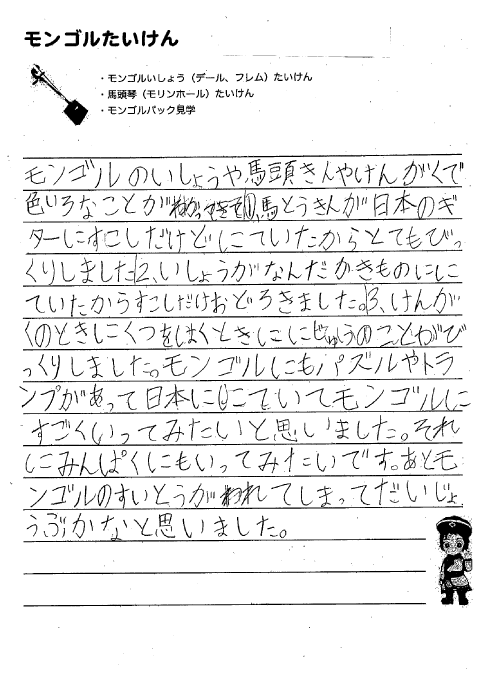 モンゴルたいけん
・モンゴルいしょう（デール、フレム）たいけん
・馬頭琴（モリンホール）たいけん
・モンゴルパック見学
モンゴルのいしょうや馬頭きんやけんがくで
色いろなことがわかってきて①、馬とうきんが日本のギ
ターにすこしだけどにていたからとてもびっ
くりしました2、いしょうがなんだかきものにに
ていたからすこしだけおどろきました。3、けんが
くのときしにくつをはくときにに じゅうのことがび
っくりしました。モンゴルにもパズルやトラ
ンプがあって日本ににていてモンゴルに
すごくいってみたいと思いました。それ
にみんぱくにもいってみたいです。あとモ
ンゴルのすいとうがわれてしまってだいじょ
うぶかなと思いました。